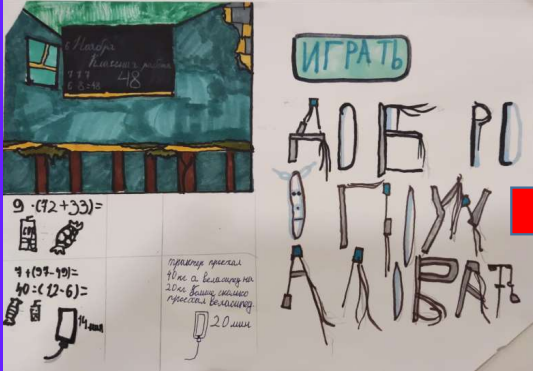 Ноября
Классная работа
1 1 1 48
6·8=48
ИГРАТЬ
ДОБРО
ПОЖ
АЛОВАТЬ
9·(72+33)=
7+(97-49)=
40:(12-6)=
14 мин
трактор проехал
40км а велосипед на
20км больше сколько
проехал велосипед.
20 мин